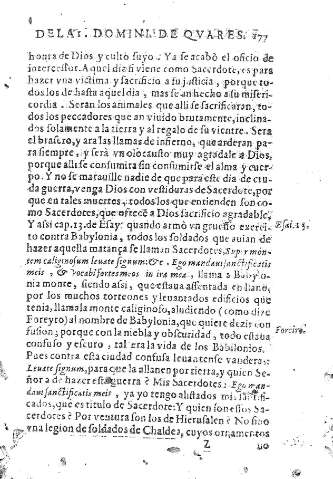 DELA I. DOMINI. DE QVARES. 177
honra de Dios y culto suyo. Ya se acabó el oficio de
intercessor. A quel dia si viene como Sacerdote, es para
hazer vna victima y sacrificio a su justicia, porque to-
dos los de hasta aquel dia, mas se an hecho a su miseri-
cordia. Seran los animales que alli se sacrificaran, to-
dos los peccadores que an viuido brutamente, inclina-
dos solamente a la tierra y al regalo de su vientre. Sera
el brasero, y ara las llamas de infierno, que arderan pa-
ra siempre, y sera vn olocausto muy agradable a Dios,
porque alli se consumira sin consumirse el alma y cuer-
po. Y no se marauille nadie de que para este dia de cru-
da guerra, venga Dios con vestiduras de Sacerdote, por
que en tales muertes, todos los que entienden son co-
mo Sacerdotes, que ofrecē a Dios sacrificio agradable.
Y assi cap. 13. de Esay: quando armò vn gruesso exerci- Esai. 13.
to contra Babylonia, todos los soldados que auian de
hazer aquella matança se llaman Sacerdotes, Super mon-
tem caliginosum leuate signum: &c. Ego mandaui sanctificatis
meis, & vocaui fortes meos in ira mea, llama a Baby-
lonia monte, siendo assi, que estaua assentada en llano,
por los muchos torreones y leuantados edificios que
tenia, llamala monte caliginoso, aludiendo (como dize
Foreyro) al nombre de Babylonia, que quiere dezir con Foreiro.
fusion; porque con la niebla y obscuridad, todo estaua
confuso y escuro, tal era la vida de los Babilonios.
Pues contra esta ciudad confusa leuantense vanderas:
Leuate signum, para que la allanen por tierra, y quien Se-
ñora de hazer esta guerra? Mis Sacerdotes: Ego man-
daui sanctificatis meis, ya yo tengo alistados mi santifi-
cados, que es titulo de Sacerdote: Y quien son essos Sa-
cerdotes? Por ventura son los de Hierusalen? No sino
vna legion de soldados de Chaldea, cuyos ornamentos
Z no